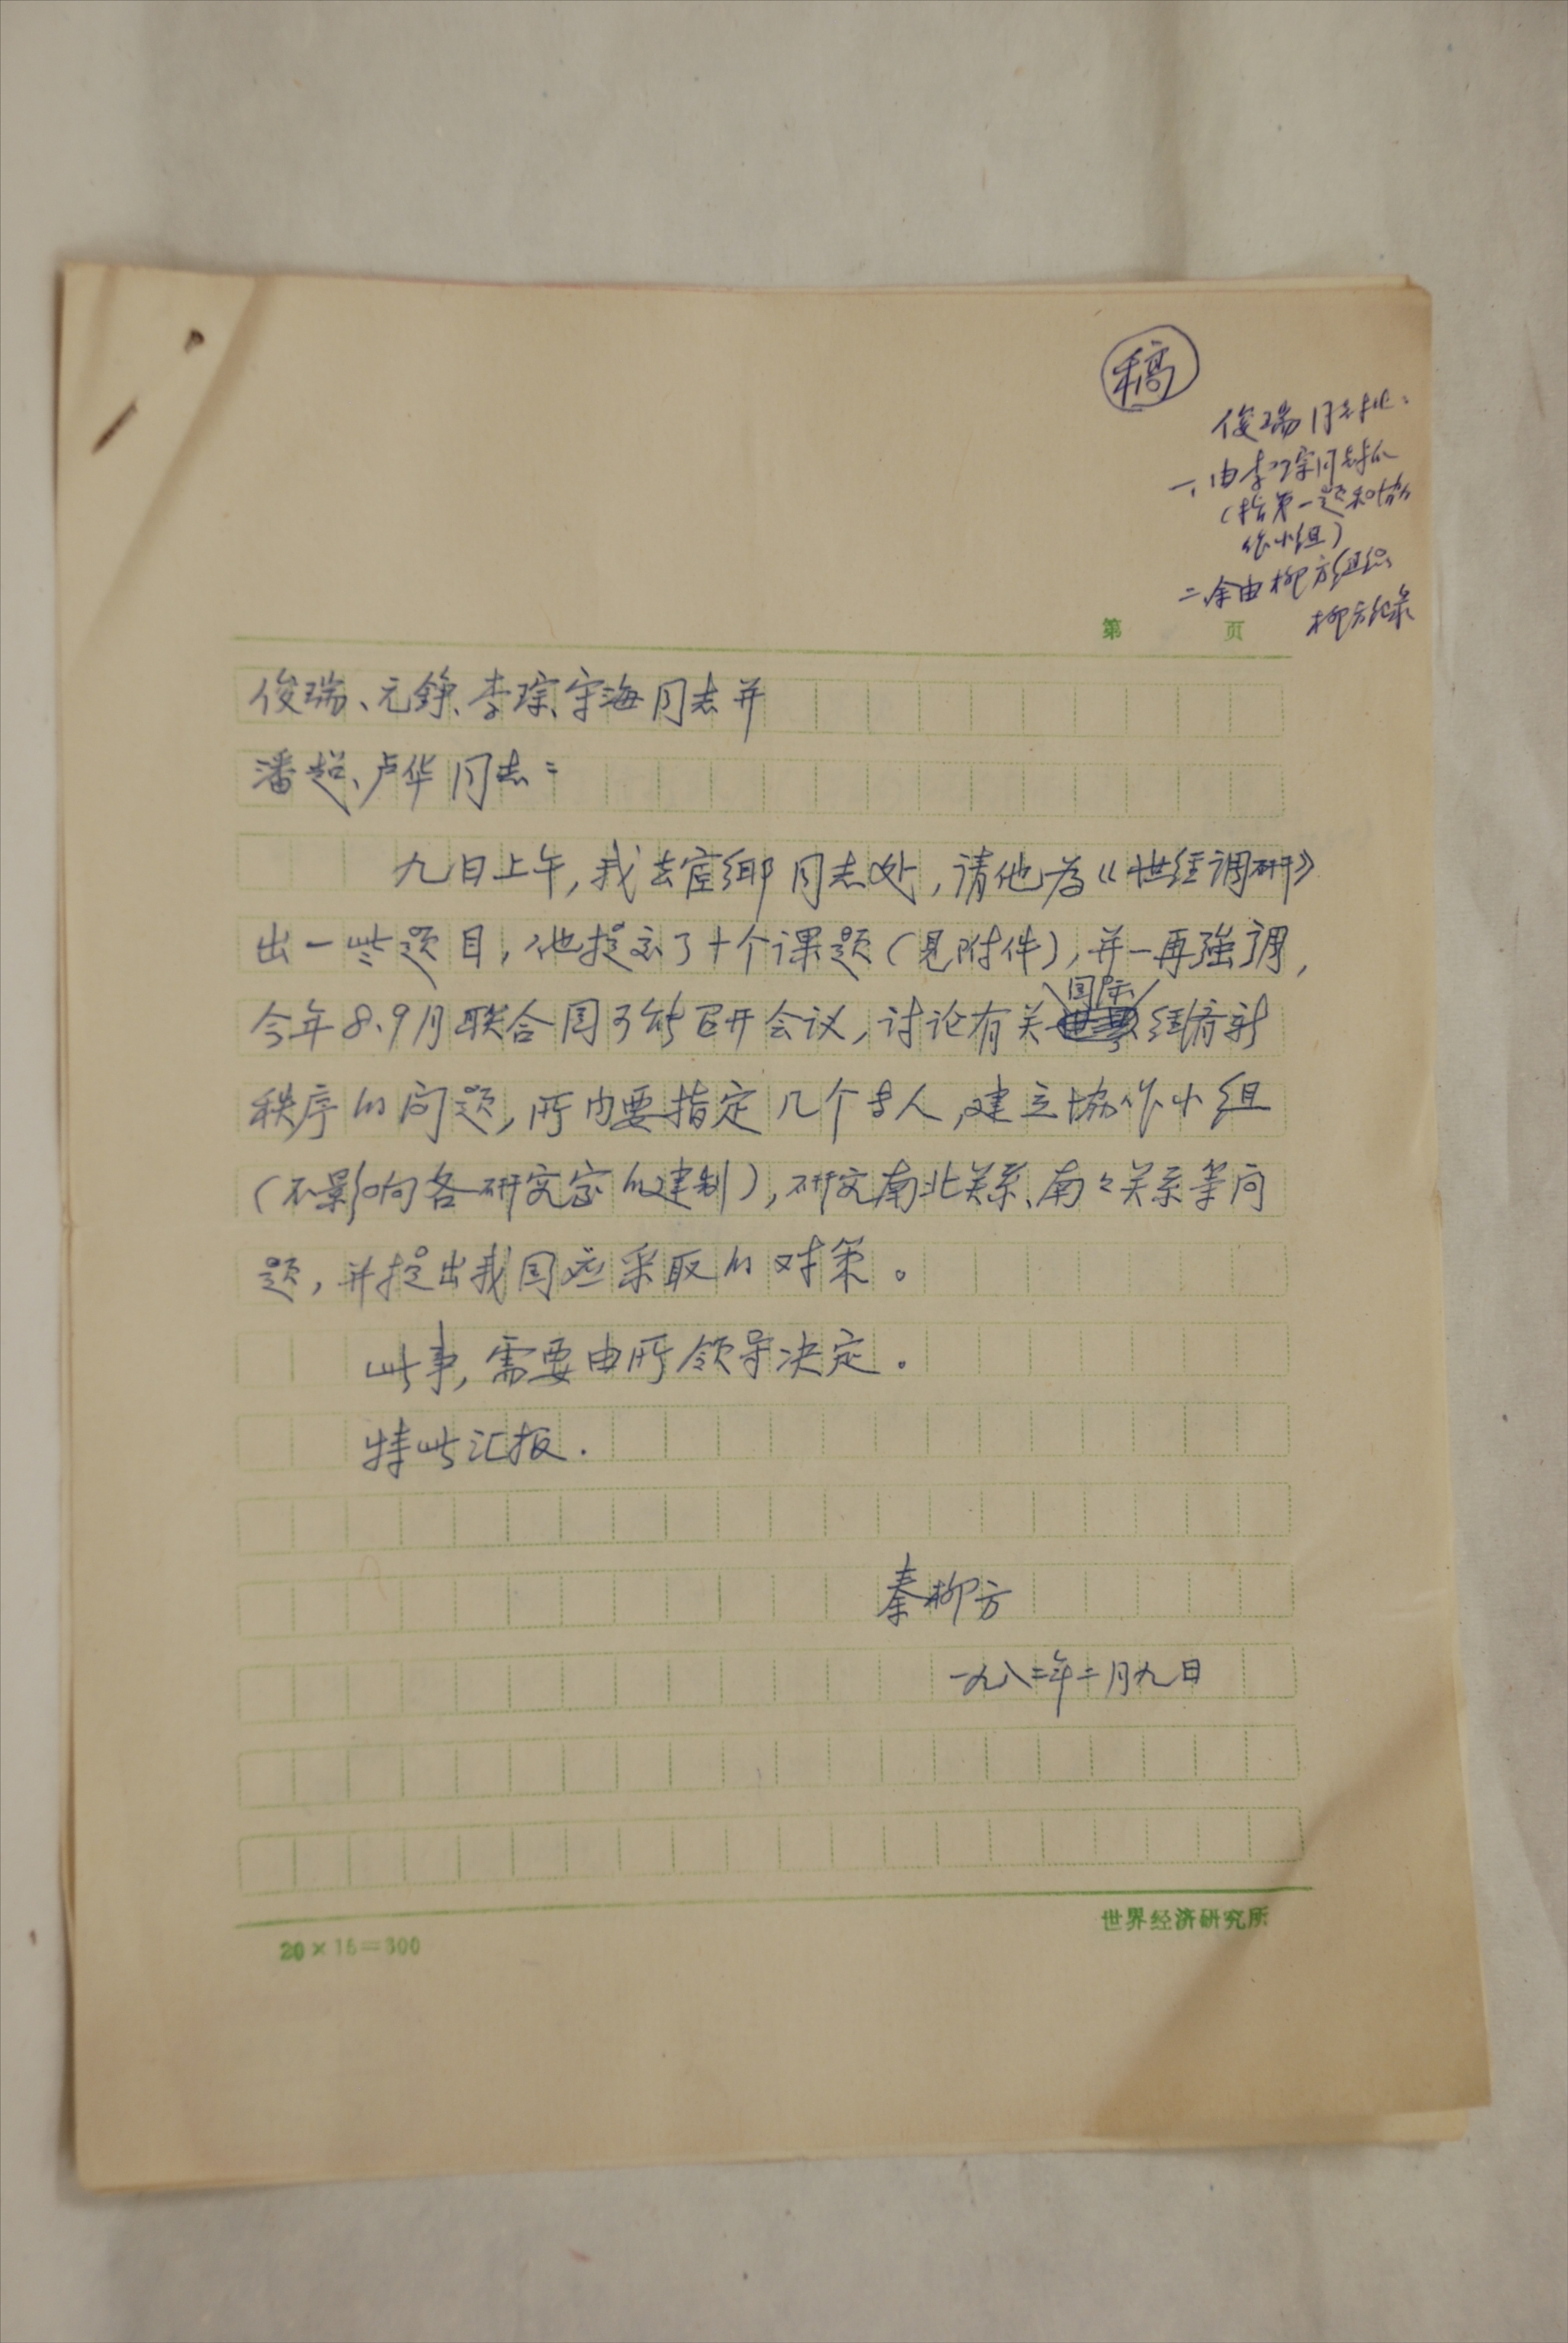 稿
俊瑞同志批：
一、由李琮同志抓
（指第一题和协
作小组）
二、余由柳方组织
柳方记录
第 页
俊瑞、元铮、李琮、守海同志并
潘超、卢华同志：
九日上午，我去宦乡同志处，请他为《世经调研》
出一些题目，他提示了十个课题（见附件），并一再强调，
国际
今年8、9月联合国可能召开会议，讨论有关经济新
秩序的问题，所内要指定几个专人，建立协作小组
（不影响各研究室的建制），研究南北关系、南々关系等问
题，并提出我国应采取的对策。
此事，需要由所领导决定。
特此汇报.
秦柳方
一九八二年二月九日
20×15=300
世界经济研究所